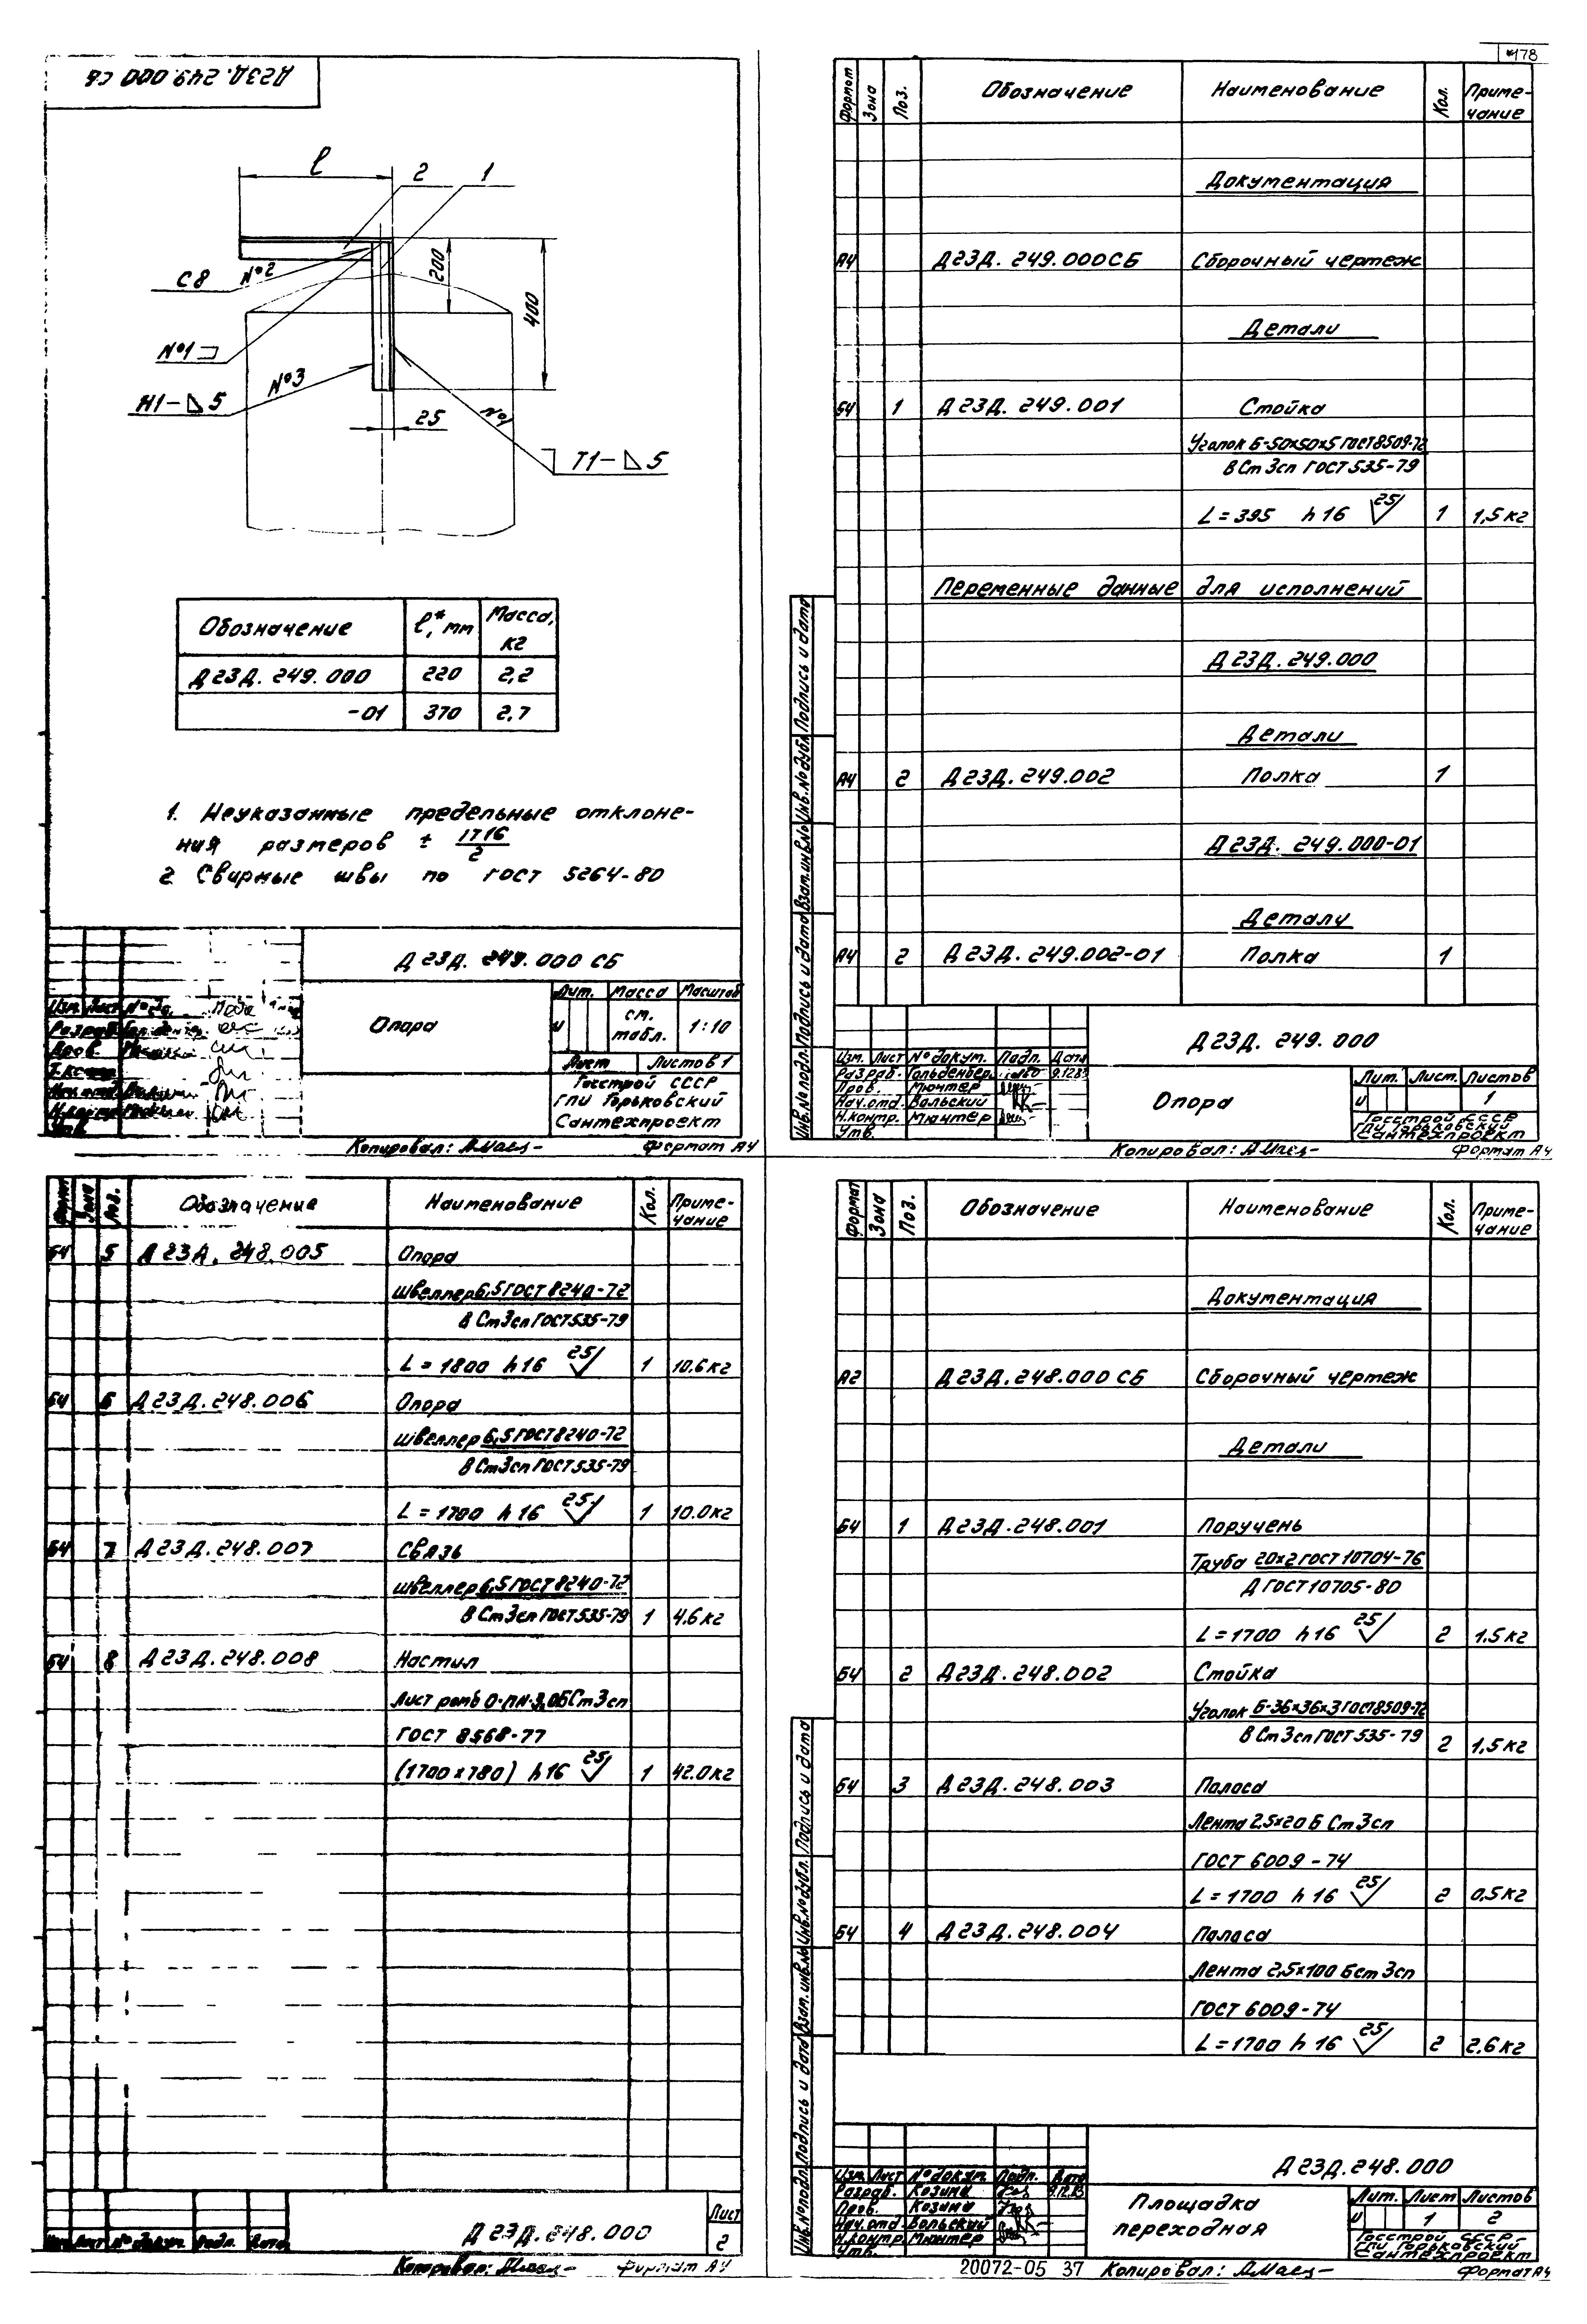 *178
Д23Д. 249.000 СБ
ℓ
2
1
200
400
С8
№2
№1
№3
Н1-△5
25
№1
Т1-△5
Обозначение ℓ,* мм Масса, кг
Д23Д. 249.000 220 2,2
-01 370 2,7
1. Неуказанные предельные отклоне-
ния размеров ± IT16/2
2. Свирные швы по ГОСТ 5264-80
Д23Д. 249.000 СБ
Опора
Лит. Масса Масштаб
и см. табл. 1:10
Лист Листов 1
Госстрой СССР
ГПИ Горьковский
Сантехпроект
Копировал: Формат А4
Формат Зона Поз. Обозначение Наименование Кол. Приме-
чание
Документация
А4 Д23Д. 249.000СБ Сборочный чертеж
Детали
Б4 1 Д23Д. 249.001 Стойка
Уголок Б-50х50х5 ГОСТ 8509-72
ВСт3сп ГОСТ 535-79
L=395 h16 25 1 1,5кг
Переменные данные для исполнений
Д23Д. 249.000
Детали
А4 2 Д23Д. 249.002 Полка 1
Д23Д. 249.000-01
Детали
А4 2 Д23Д. 249.002-01 Полка 1
Инв.№подл. Подпись и дата Взам.инв.№ Инв.№дубл. Подпись и дата
Д23Д. 249.000
Изм. Лист №докум. Подп. Дата
Разраб. Гольденбер.
Пров. Мюнтер
Нач.отд. Вольский
Н.контр. Мюнтер
Утв.
Опора
Лит. Лист. Листов
и 1
Госстрой СССР
ГПИ Горьковский
Сантехпроект
Копировал: Формат А4
Формат Зона Поз. Обозначение Наименование Кол. Приме-
чание
Б4 5 Д23Д. 248.005 Опора
Швеллер 6,5 ГОСТ 8240-72
ВСт3сп ГОСТ 535-79
L=1800 h16 25 1 10.6кг
Б4 6 Д23Д. 248.006 Опора
Швеллер 6,5 ГОСТ 8240-72
ВСт3сп ГОСТ 535-79
L=1700 h16 25 1 10.0кг
Б4 7 Д23Д. 248.007 Связь
Швеллер 6,5 ГОСТ 8240-72
ВСт3сп ГОСТ 535-79 1 4.6кг
Б4 8 Д23Д. 248.008 Настил
Лист ромб О-ПН-3,0БСт3сп
ГОСТ 8568-77
(1700х780) h16 25 1 42.0кг
Изм. Лист №докум. Подп. Дата
Д23Д. 248.000
Лист
2
Копировал: Формат А4
Формат Зона Поз. Обозначение Наименование Кол. Приме-
чание
Документация
А2 Д23Д. 248.000 СБ Сборочный чертеж
Детали
Б4 1 Д23Д. 248.001 Поручень
Труба 20х2 ГОСТ 10704-76
Д ГОСТ 10705-80
L=1700 h16 25 2 1.5кг
Б4 2 Д23Д. 248.002 Стойка
Уголок Б-36х36х3 ГОСТ 8509-72
ВСт3сп ГОСТ 535-79 2 1,5кг
Б4 3 Д23Д. 248.003 Полоса
Лента 2,5х20 БСт3сп
ГОСТ 6009-74
L=1700 h16 25 2 0,5кг
Б4 4 Д23Д. 248.004 Полоса
Лента 2,5х100 Бст3сп
ГОСТ 6009-74
L=1700 h16 25 2 2,6кг
Инв.№подл. Подпись и дата Взам.инв.№ Инв.№дубл. Подпись и дата
Д23Д. 248.000
Изм. Лист №докум. Подп. Дата
Разраб. Козина
Пров. Козина
Нач.отд. Вольский
Н.контр. Мюнтер
Утв.
Площадка
переходная
Лит. Лист Листов
и 1 2
Госстрой СССР
ГПИ Горьковский
Сантехпроект
20072-05 37 Копировал: Формат А4